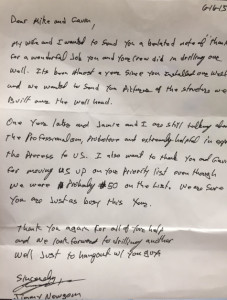 6-16-15
Dear Mike and Gavin,
My wife and I wanted to send you a belated note of thank
for a wonderful job you and your crew did in drilling our
Well. Its been almost a year since you installed our Well
and we wanted to send you pictures of the structure we
Built over the well head.
One Year later and Jamie and I are still talking about
The Professionalism, and extremely helpful in
the Process to us. I also want to thank you and Gavin
for moving us up on your Priority list even though
We were Probably #50 on the List. We are sure
You are Just as busy this Year.
Thank you again for all of your help
and we look forward to drilling another
Well Just to hangout w/ you guys
Sincerely,
Jimmy